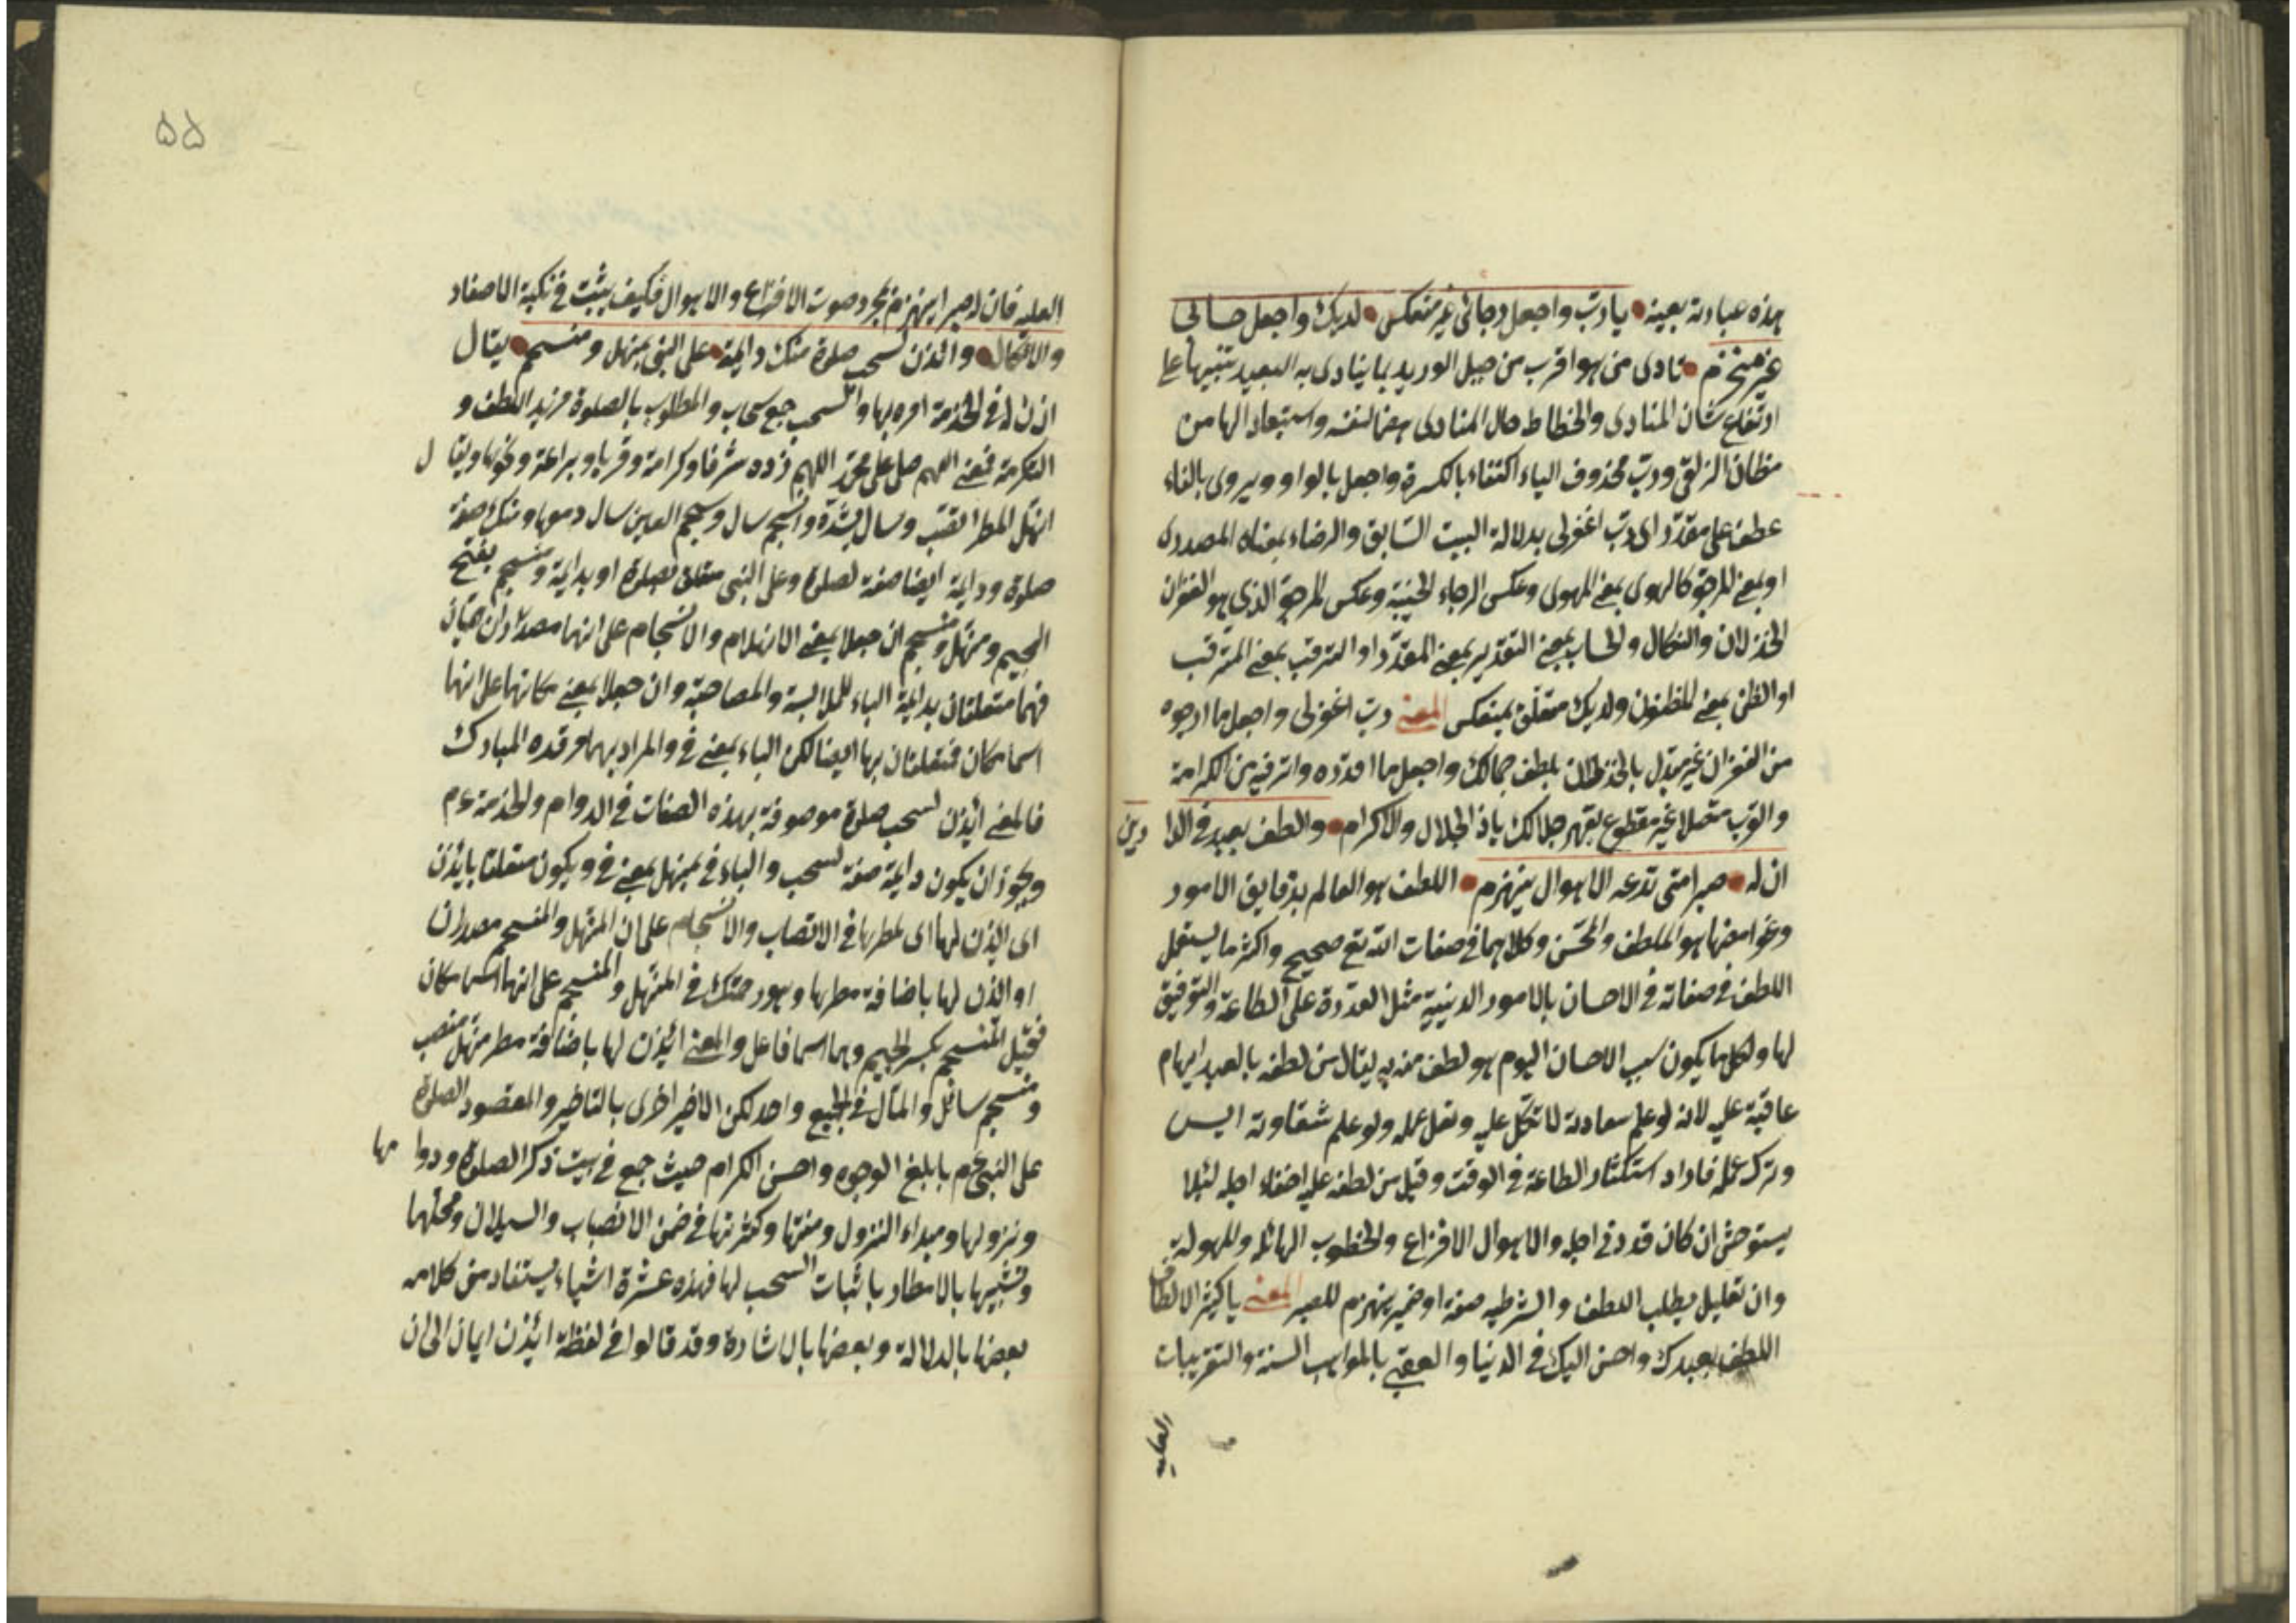 هذه عبارته بعينه يا رب واجعل رجائي غير منعكس لديك واجعل حسابي
غير منخرم نادى من هو اقرب من حبل الوريد بما ينادى به البعيد تنبيها على
ارتفاع شان المنادى والخطاط حال المنادى هضما لنفسه واستبعادا لها من
مظان الزلفى ورب محذوف الياء اكتفاء بالكسرة واجعل بالواو ويروى بالفاء
عطف على مقدر اى رب اغفرلى بدلالة البيت السابق والرضاء بمعناه المصدرى
او بمعنى المرجو كالهوى بمعنى المهوى وعكس الرجاء الخيبة وعكس المرجو الذي هو الغفران
الخذلان والنكال والحساب بمعنى التقدير بمعنى المقدر او الترقب بمعنى المترقب
او الظن بمعنى المظنون ولديك متعلق بمنعكس المعنى رب اغفرلى واجعل ما ارجوه
من الغفران غير مبدل بالخذلان بلطف جمالك واجعل ما اقدره واترقبه من الكرامة
والقرب متصلا غير مقطوع بقهر جلالك ياذ الجلال والاكرام والطف بعبدك فى الدارين
ان له صبرا متى تدعه الاهوال ينهزم اللطف هو العالم بدقايق الامور
وغوامضها هو الملطف والمحسن وكلاهما فى صفات الله تع صحيح واكثر ما يستعمل
اللطف فى صفاته فى الاحسان بالامور الدينية مثل القدرة على الطاعة والتوفيق
لها ولكل ما يكون سبب الاحسان اليوم هو لطف منه به يقال من لطفه بالعبد ابهام
عاقبة عليه لانه لو علم سعادته لا تكل عليه وتقل عمله ولو علم شقاوته ايس
وترك عمله فاراد استكثار الطاعة فى الوقت وقيل من لطفه عليه اخفاء اجله لئلا
يستوحش ان كان قد دنى اجله والاهوال الافزاع والخطوب الهائله والمهولة
وان تعليل بطلب اللطف والشرطيه صفة او ضمير ينهزم للصبر المعنى يا كثير الالطاف
الطف بعبدك واحسن اليك فى الدنيا والعقبى بالمواهب السنة والتقريبات
العليه
۵۵
العليه فان له صبرا ينهزم بمجرد صوت الافزاع والاهوال فكيف يثبت فى نكبة الاصفاد
والانكال وائذن لسحب صلوة منك دايمة على النبى بمنهل ومنسجم يقال
اذن له فى الخدمة امره بها والسحب جمع سحاب والمطلوب بالصلوة مزيد اللطف و
التكرمة فمعنى اللهم صل على محمد اللهم زده شرفا وكرامة وقربا وبراعة ونحوها ويقال
انهل المطر انصب وسال بشدة وانسجم سال وسجم العين سال دموها ومنك صفة
صلوة ودايمة ايضا صفة لصلوة وعلى النبى متعلق بصلوة او بدايمة ومنسجم بفتح
الجيم ومنهل ومنسجم ان جعلا بمعنى الانهلام والانسجام على انهما مصدران
فهما متعلقتان بدايمة الباء للملابسة والمصاحبة وان جعلا بمعنى مكانهما على انهما
اسما مكان فمتعلقتان بها ايضا لكن الباء بمعنى فى والمراد بهما مرقده المبارك
فالمعنى ائذن لسحب صلوة موصوفة بهذه الصفات فى الدوام والخدمة عم
ويجوز ان يكون دايمة صفة لسحب والباء فى بمنهل بمعنى فى ويكون متعلقا بايذن
اى ايذن لها اى لمطرها فى الانصاب والانسجام على ان المنهل والمنسجم مصدران
او ائذن لها باضافة مطرها وهو رحمتك فى المنهل والمنسجم على انهما اسما مكان
فقيل المنسجم بكسر الجيم وهما اسما فاعل والمعنى ائيذن لها باضافة مطر منهل منصب
ومنسجم سائل والمآل فى الجميع واحد لكن الاخير احرى بالتاخير والمقصود الصلوة
على النبى عم بابلغ الوجوه واحسن الكرام حيث جمع فى بيت ذكر الصلوة ودوامها
ونزولها ومبداء النزول ومنتها وكثرتها فى ضمن الانصباب والسيلان ومحلهما
وتشبيها بالامطار باثبات السحب لها فهذه عشرة اشياء يستفاد من كلامه
بعضها بالدلالة وبعضها بالاشارة وقد قالوا فى لفظة ائيذن ايمان الى ان